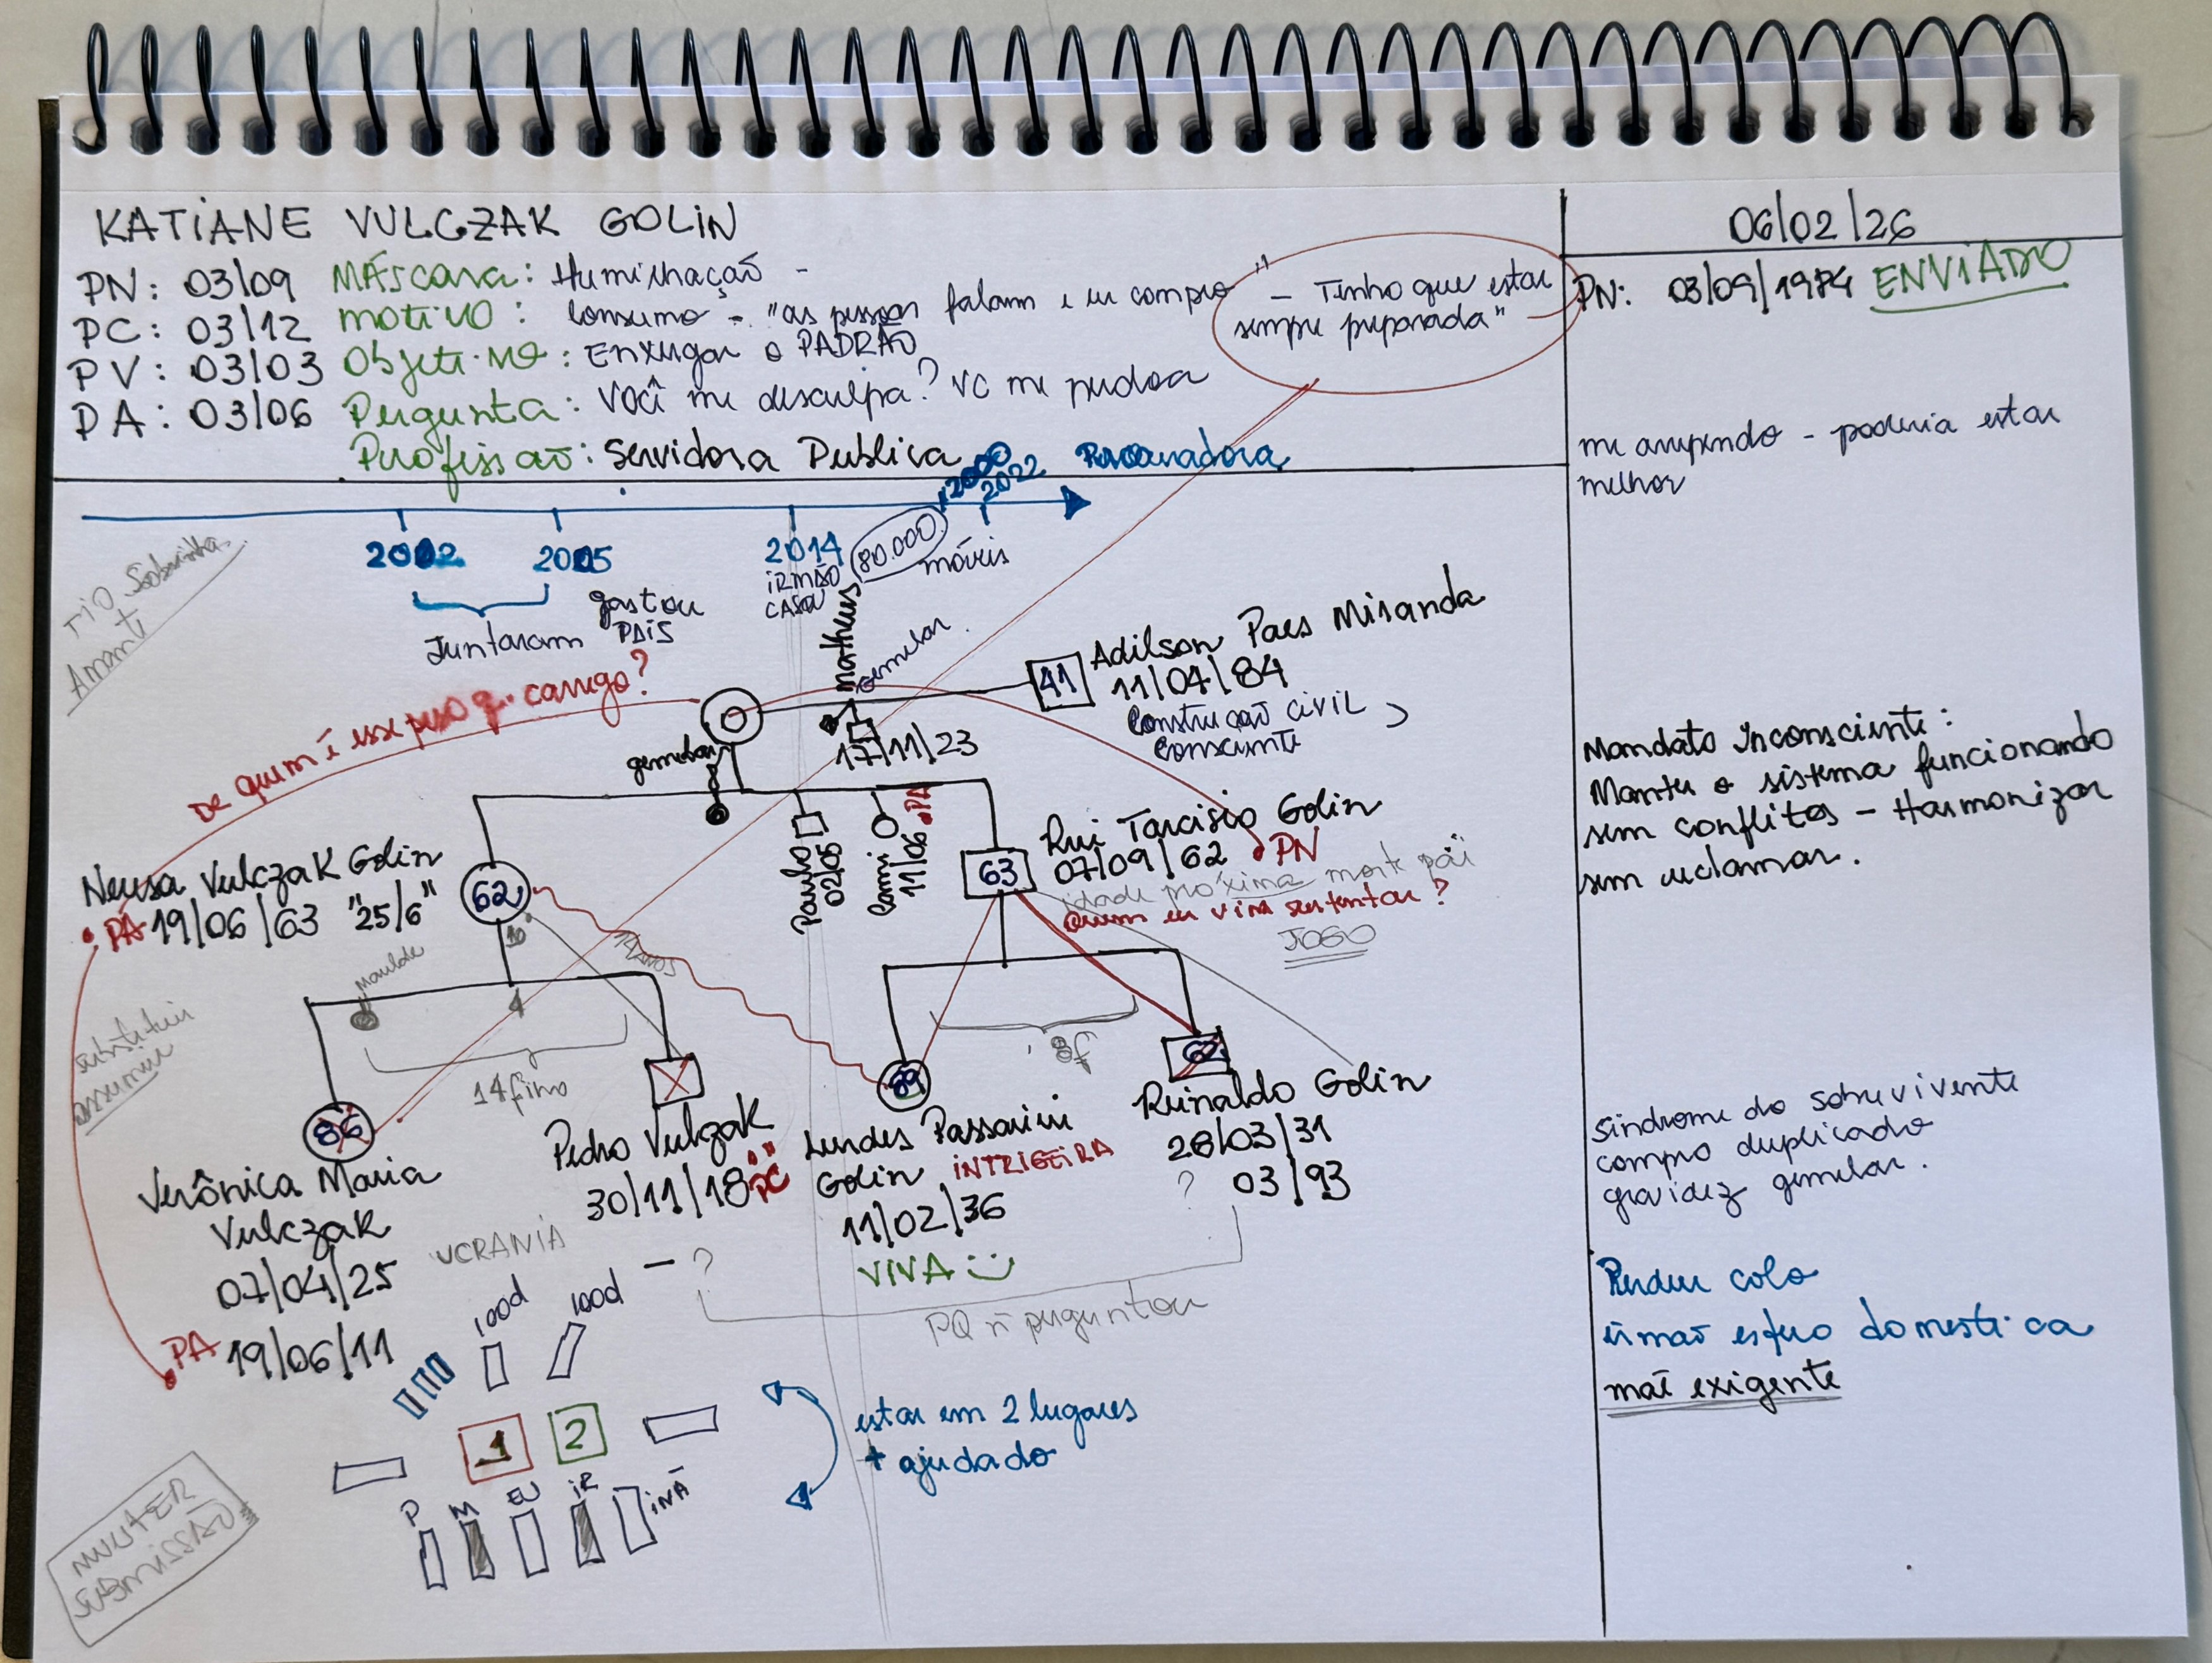 KATIANE VULCZAK GOLIN
06/02/26
PN: 03/09
PC: 03/12
PV: 03/03
PA: 03/06
MÁSCARA: Humilhação -
MOTIVO: Consumo - "as pessoas falam e eu compro"
- Tenho que estar
sempre preparada"
Objetivo: Enxugar o PADRÃO
Pergunta: Você me desculpa? vc me perdoa
Profissão: Servidora Publica
PN: 03/09/1984 ENVIADO
me arrependo - poderia estar
melhor
2022
2002
2005
2014
IRMÃO
CASOU
80.000
móveis
Juntaram
gastou
PAIS
TIO Sobrinha
+
Amante
matheus
gemelar.
De quem é esse peso q. carrego?
gemelar
17/11/23
41
Adilson Paes Miranda
11/04/84
Construção Civil
Consciente
Mandato Inconsciente:
Manter o sistema funcionando
sem conflitos - Harmonizar
sem reclamar.
Neusa Vulczak Golin
PA 19/06/63 "25/6"
62
Paulo
02/05
11/06
PA
63
Rui Tarcisio Golin
07/09/62 PN
idade próxima morte pai
Quem eu vim sustentar?
JOGO
10
14 anos
4
14 filhos
8f
substituir
assumir
86
Verônica Maria
Vulczak
07/04/25
PA 19/06/11
Pedro Vulczak
30/11/18 "PC"
UCRANIA
— ?
89
Lurdes Passarini
Golin INTRIGEIRA
11/02/36
VIVA
Reinaldo Golin
28/03/31
? 03/93
PQ ñ perguntou
Sindrome do sobrevivente
compro duplicado
gravidez gemelar.
Perdeu colo
irmão esfera domestica
mãe exigente
100d
100d
1
2
P
M
EU
IR
estar em 2 lugares
+ ajudado
MULHER
SUBMISSÃO